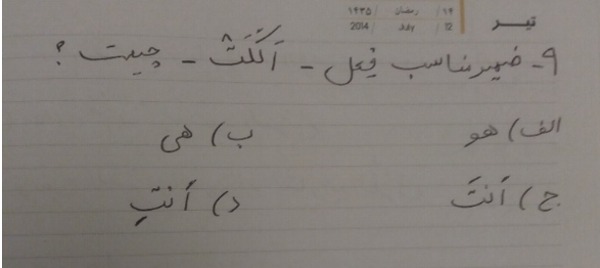 ۱۴ / رمضان / ۱۴۳۵
تیر
12 / July / 2014
۹- ضمیر مناسب فِعل - اَکَلَتْ - چیست ؟
الف) هو ب) هی
ج) اَنتَ د) اَنتِ